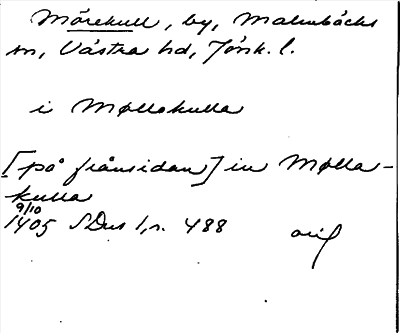 Mörekull, by, Malmbäcks
sn, Västra hd, Jönk. l.
i Møllokulla
[på frånsidan] in Mølla-
kulla
9/10
1405 SDns 1, s. 488 orig